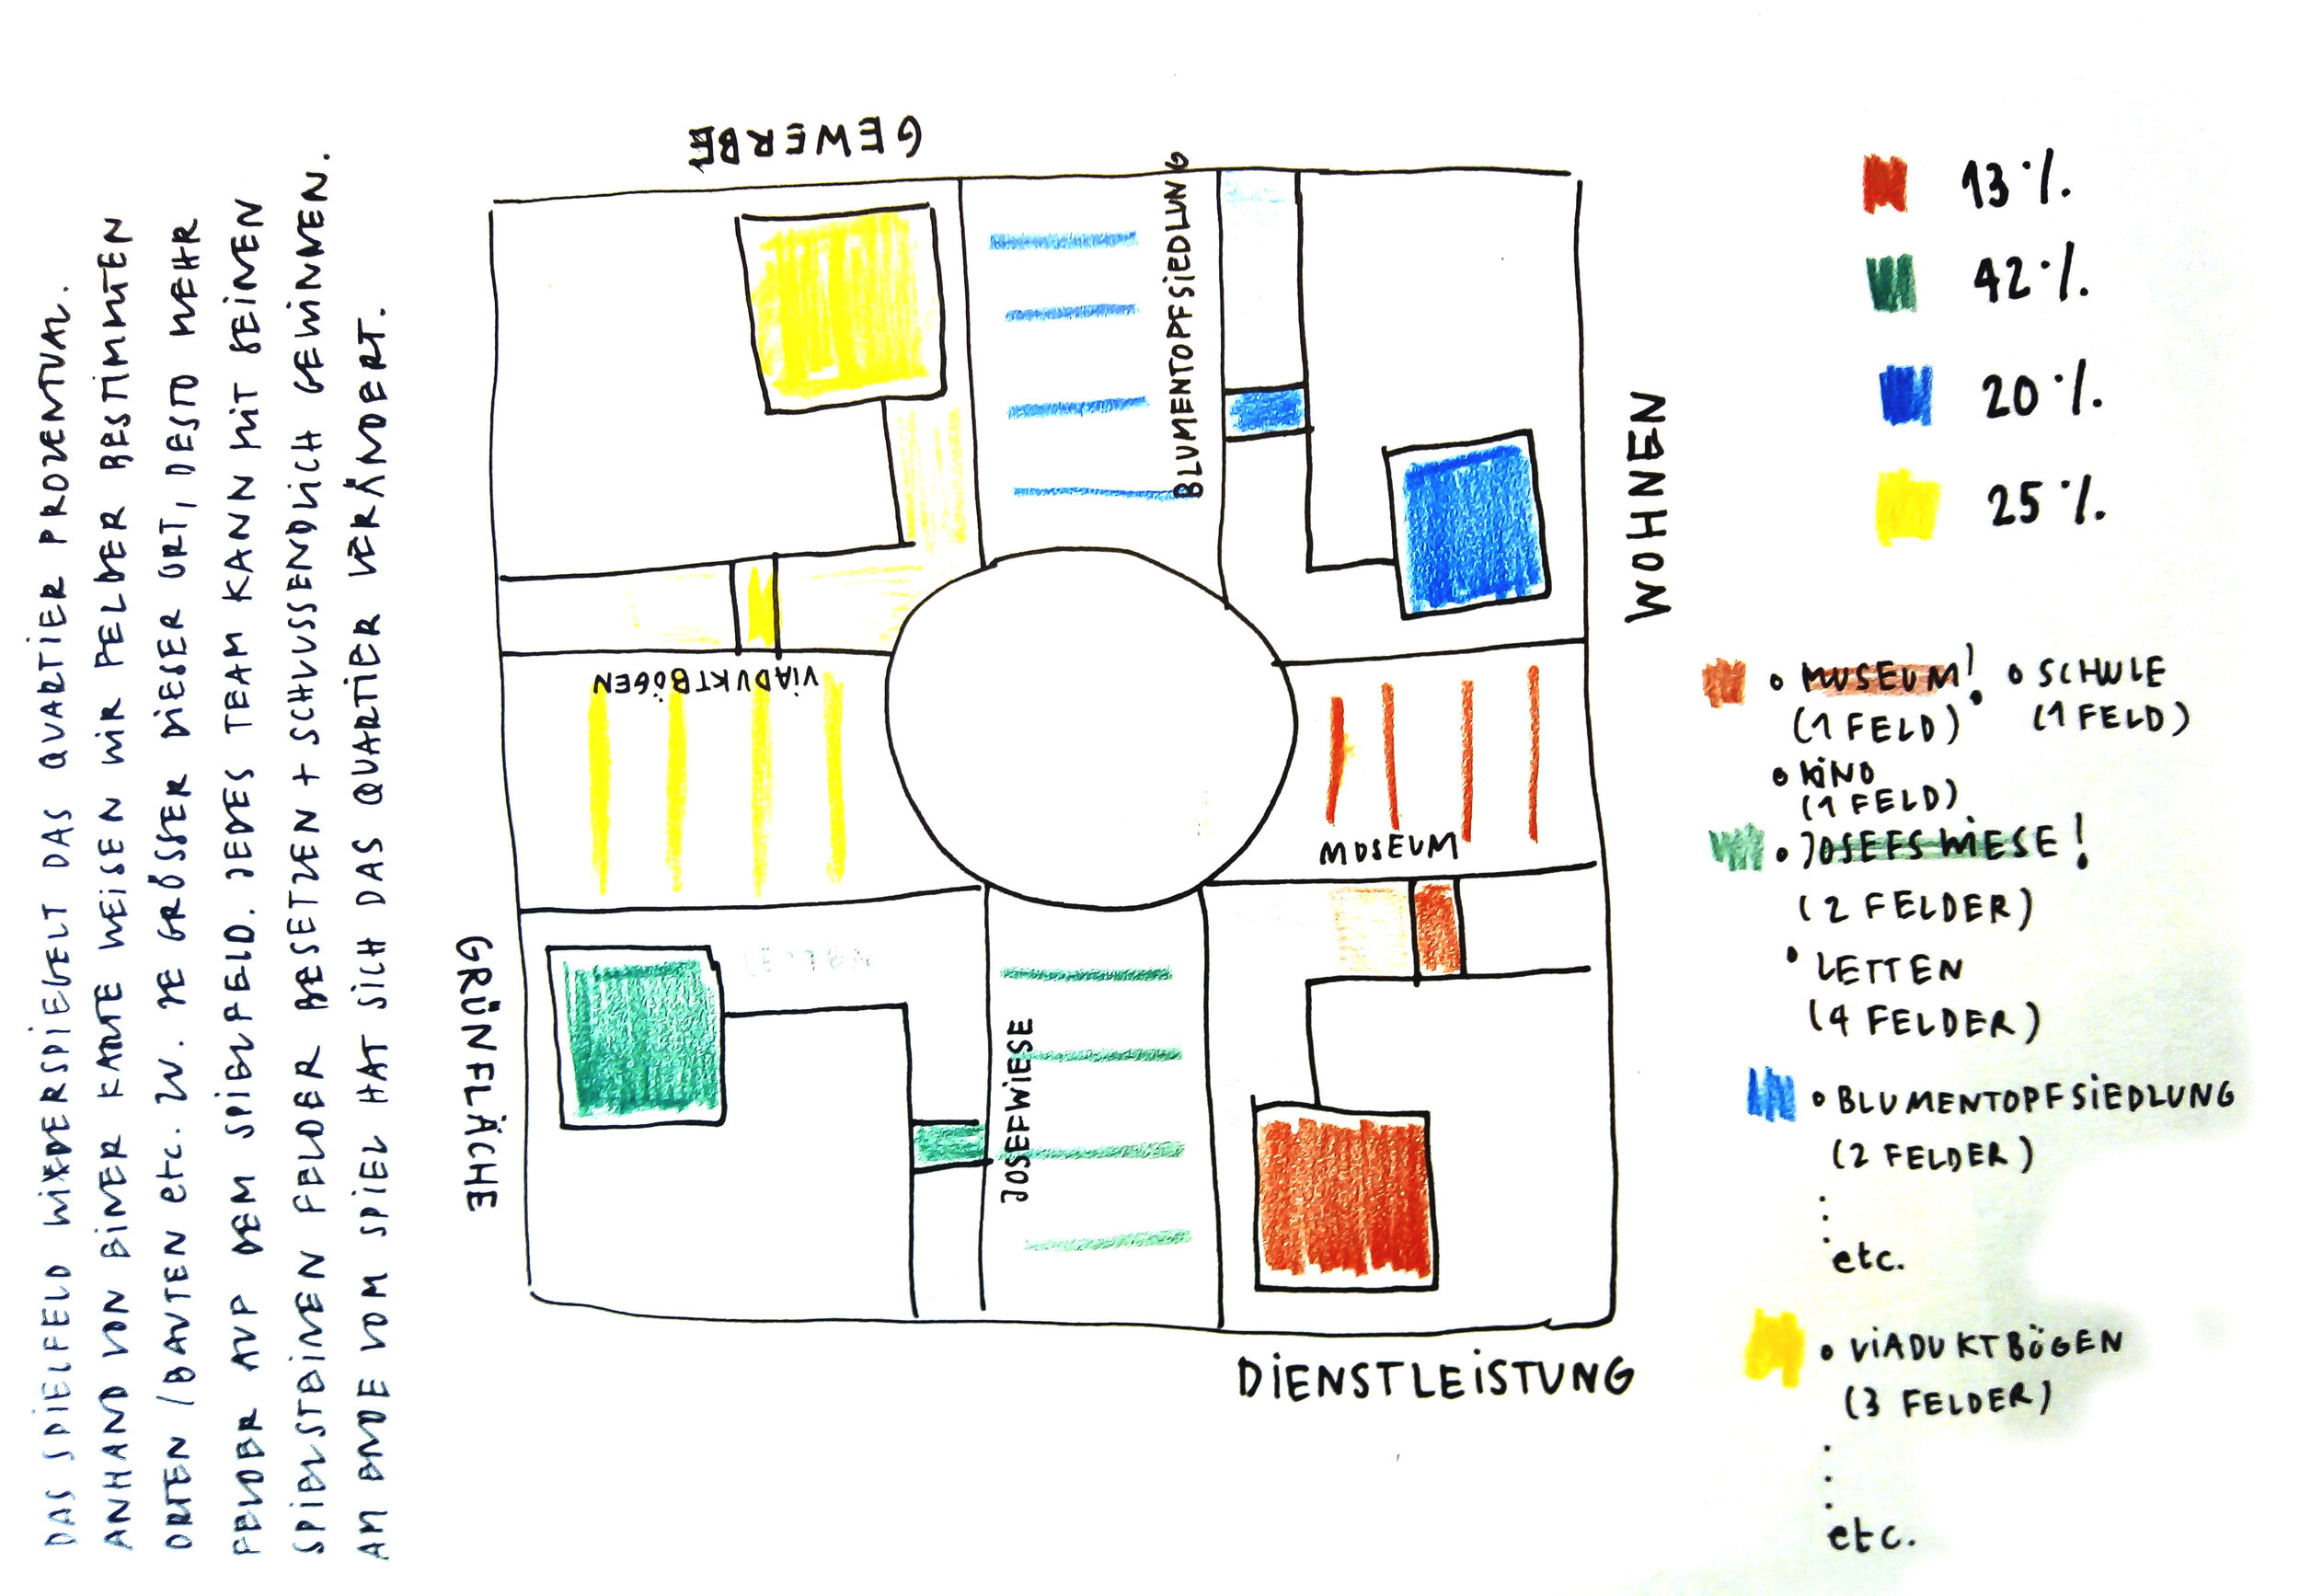 DAS SPIELFELD WIEDERSPIEGELT DAS QUARTIER PROZENTUAL.
ANHAND VON EINER KARTE WEISEN WIR FELDER BESTIMMTEN
ORTEN / BAUTEN etc. ZU. JE GRÖSSER DIESER ORT, DESTO MEHR
FELDER AUF DEM SPIELFELD. JEDES TEAM KANN MIT SEINEN
SPIELSTEINEN FELDER BESETZEN + SCHLUSSENDLICH GEWINNEN.
AM ENDE VOM SPIEL HAT SICH DAS QUARTIER VERÄNDERT.
GEWERBE
BLUMENTOPFSIEDLUNG
WOHNEN
VIADUKTBÖGEN
MUSEUM
GRÜNFLÄCHE
LETTEN
JOSEFWIESE
DIENSTLEISTUNG
13 %.
42 %.
20 %.
25 %.
• MUSEUM! • SCHULE
(1 FELD) (1 FELD)
• KINO
(1 FELD)
• JOSEFSWIESE!
(2 FELDER)
• LETTEN
(4 FELDER)
• BLUMENTOPFSIEDLUNG
(2 FELDER)
etc.
• VIADUKTBÖGEN
(3 FELDER)
etc.